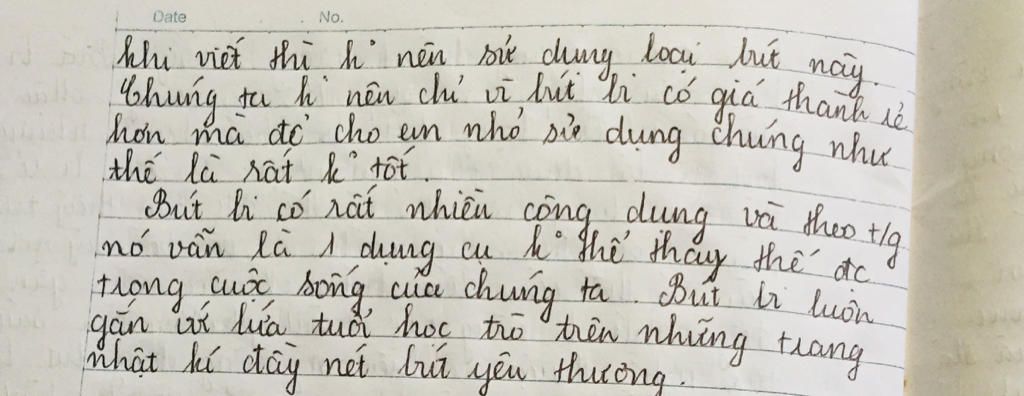 Date No.
khi viết thì k° nên sử dụng loại bút này.
Chúng ta k° nên chỉ vì bút bi có giá thành rẻ
hơn mà để cho em nhỏ sử dụng chúng như
thế là rất k° tốt.
Bút bi có rất nhiều công dụng và theo t/g
nó vẫn là 1 dụng cụ k° thể thay thế đc
trong cuộc sống của chúng ta. Bút bi luôn
gắn với lứa tuổi học trò trên những trang
nhật kí đầy nét bút yêu thương.